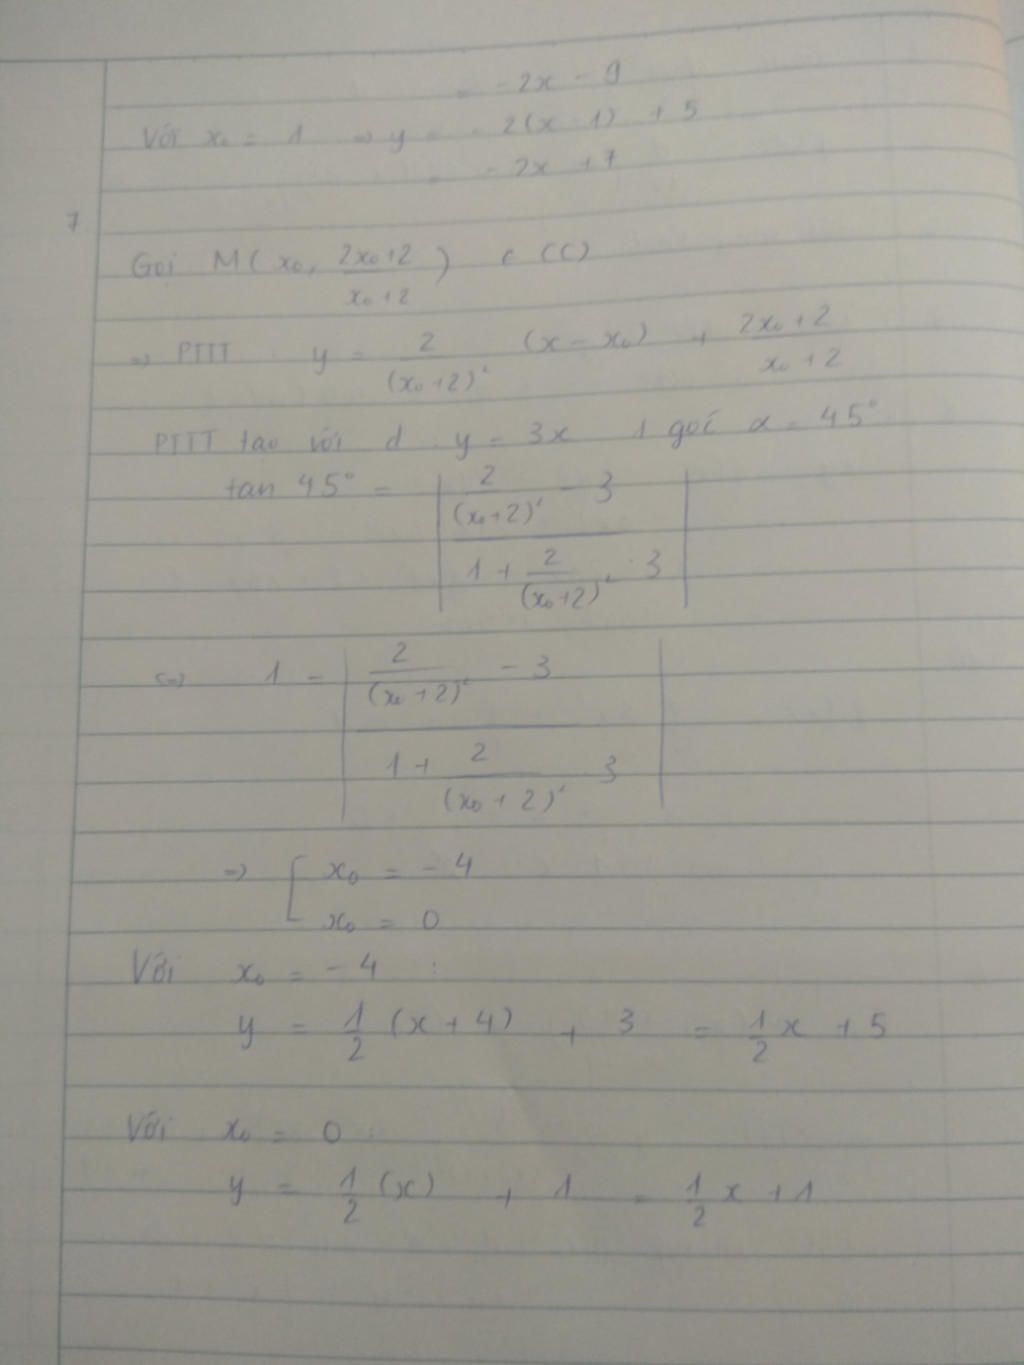 = -2x - 9
Với x₀ = 1 => y = -2(x-1) + 5
= -2x + 7
7
Gọi M(x₀, (2x₀+2)/(x₀+2)) ∈ (C)
=> PTTT: y = 2/(x₀+2)² (x - x₀) + (2x₀+2)/(x₀+2)
PTTT tạo với d: y = 3x 1 góc α = 45°
tan 45° = |(2/(x₀+2)² - 3)/(1 + 2/(x₀+2)² · 3)|
<=> 1 = |(2/(x₀+2)² - 3)/(1 + 2/(x₀+2)² · 3)|
=> [ x₀ = -4
x₀ = 0
Với x₀ = -4 :
y = 1/2 (x+4) + 3 = 1/2 x + 5
Với x₀ = 0 :
y = 1/2 (x) + 1 = 1/2 x + 1